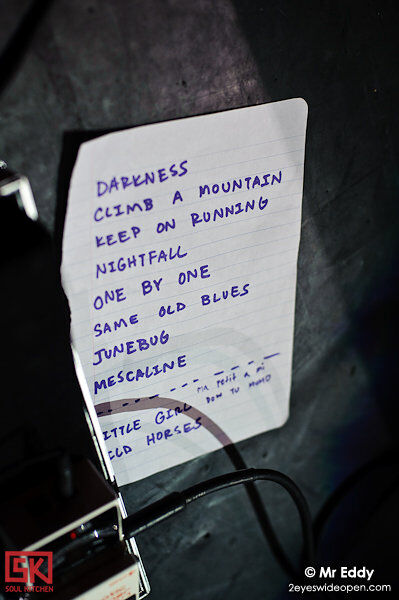 DARKNESS
CLIMB A MOUNTAIN
KEEP ON RUNNING
NIGHTFALL
ONE BY ONE
SAME OLD BLUES
JUNEBUG
MESCALINE
ITTLE GIRL
ILD HORSES
SK
SOUL KITCHEN
© Mr Eddy
2eyeswideopen.com